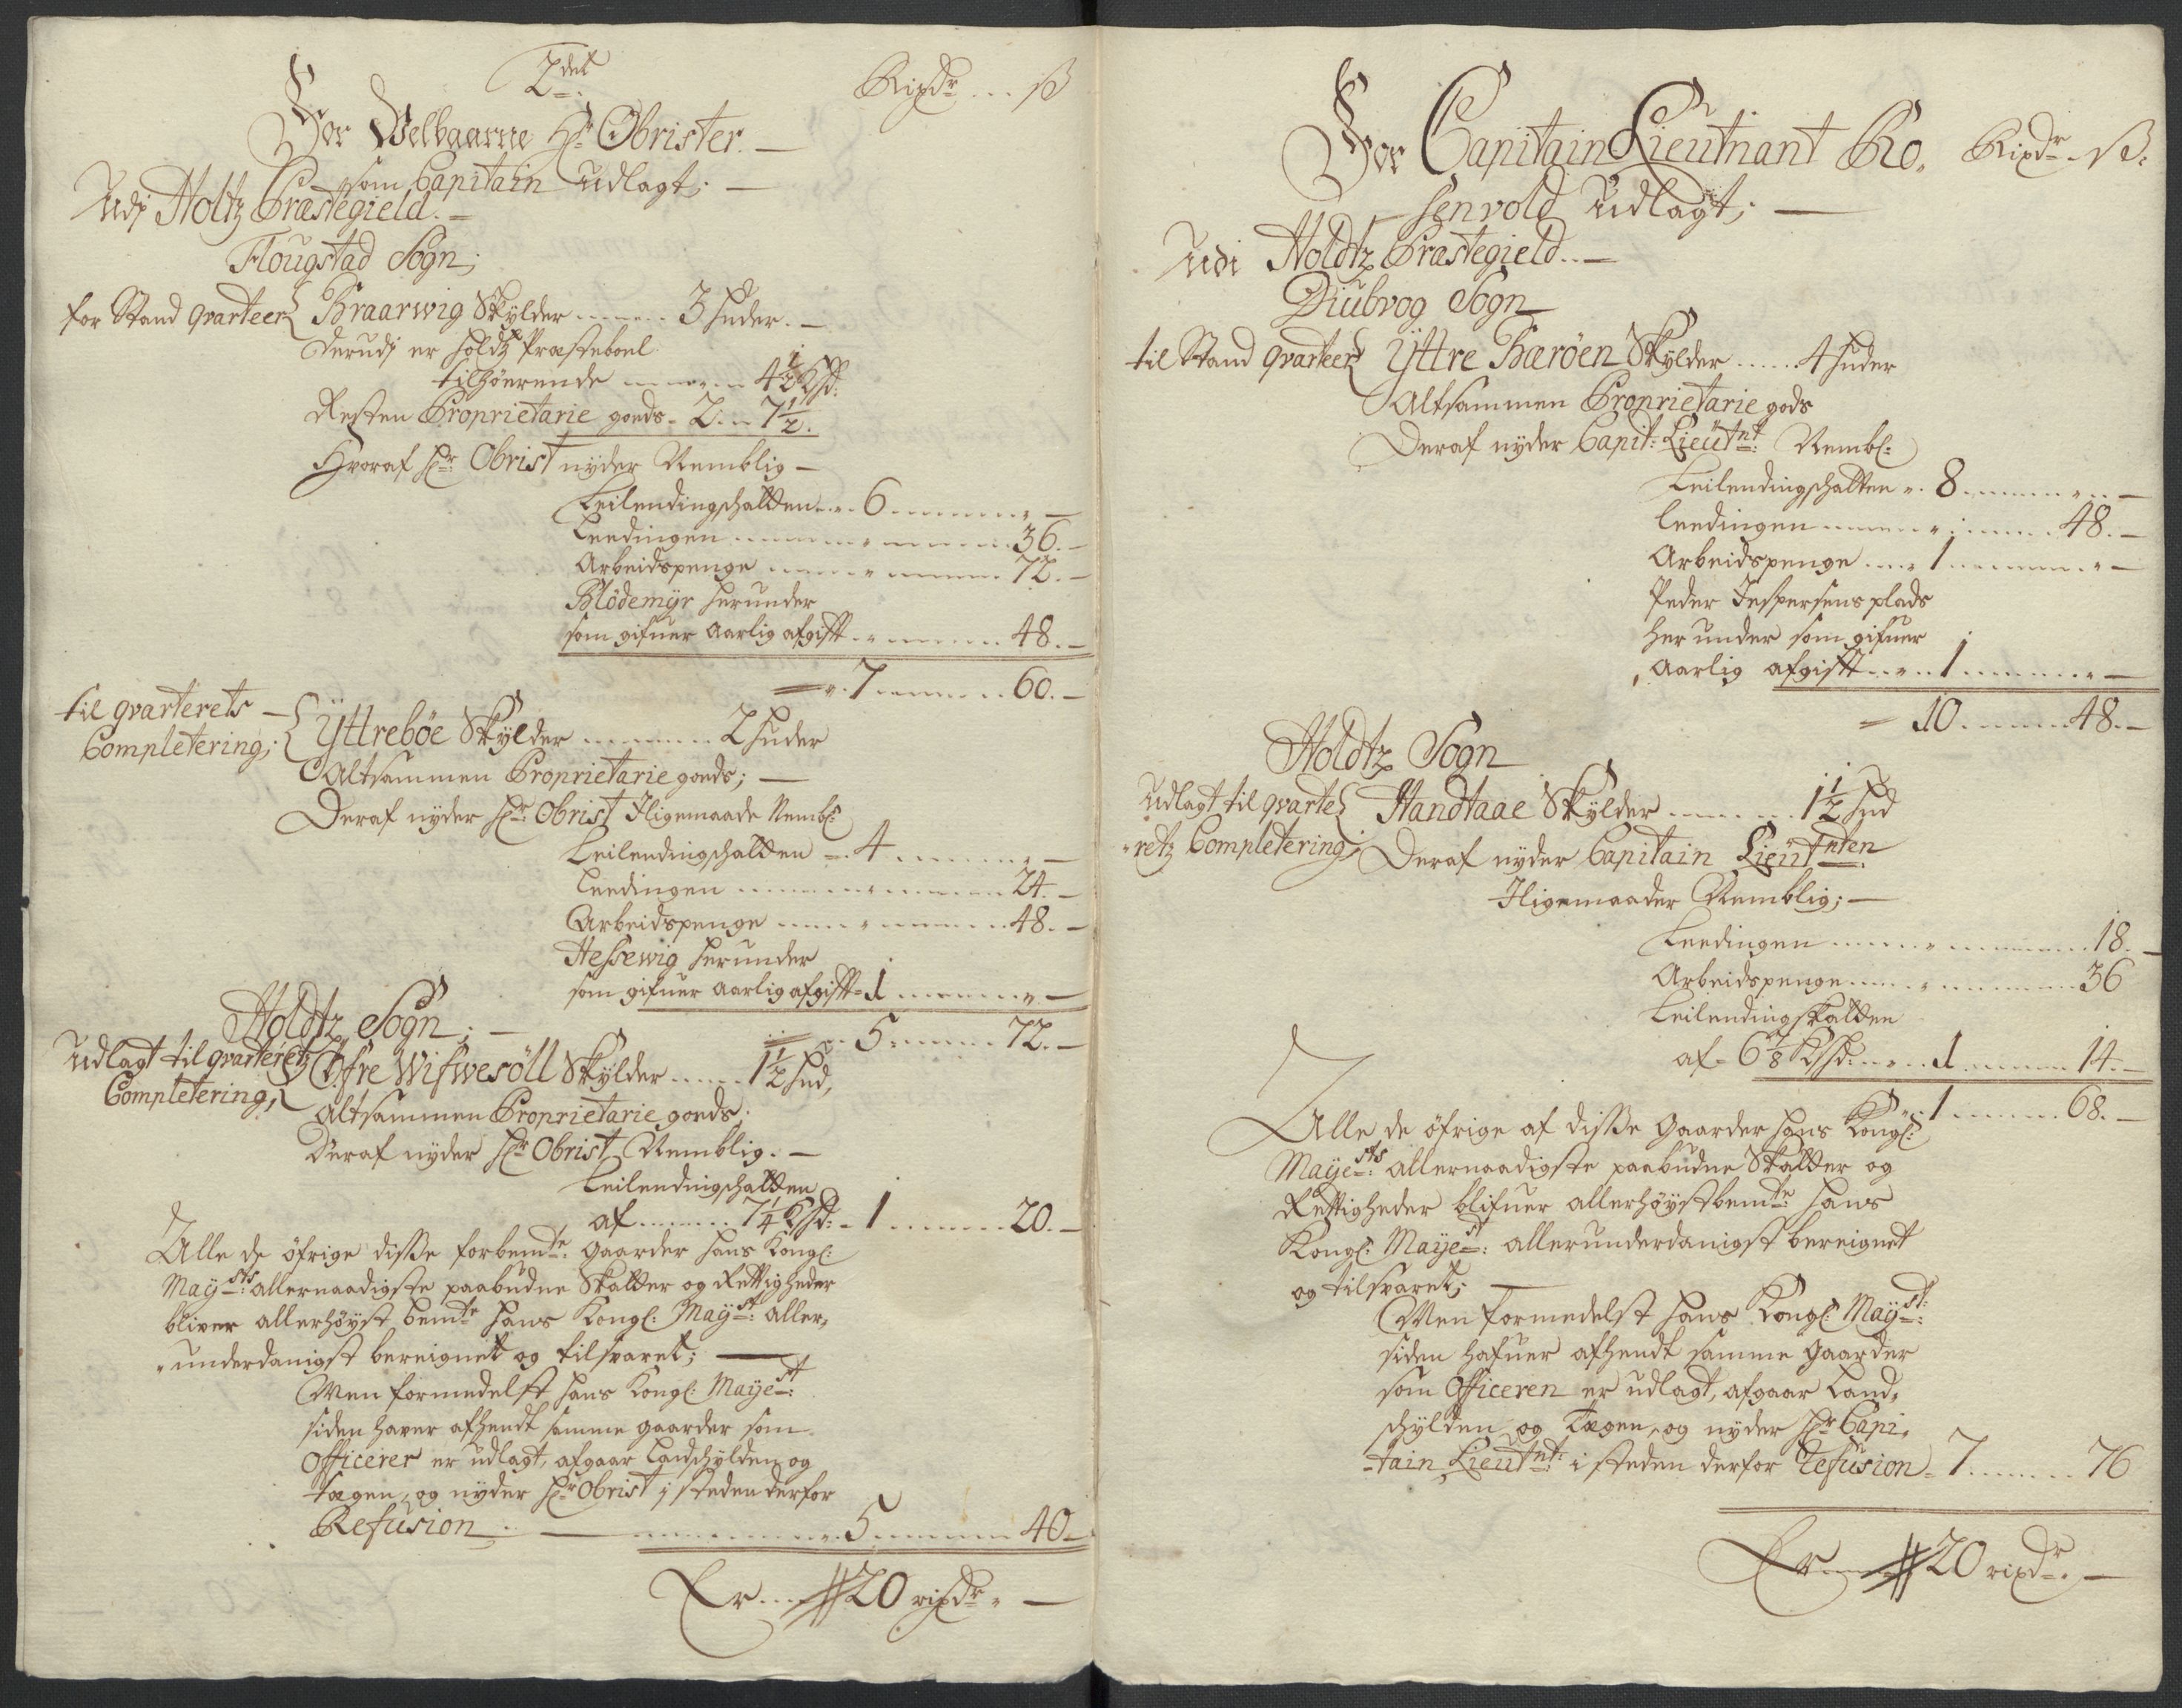 2det
Rixdr ... ß
For Velbaarne Hr: Obrister. —
som Capitain Udlagt; —
Udj Holtz Præstegield. —
Flougstad Sogn;
for Stand qvarteer Braarwig Skylder ........ 3 huder. —
Derudj er Holdtz Præsteboel
tilhörende ........ 4½ Khd:
Resten Proprietarie goeds - 2. .. 7½.
Hvoraf Hr: Obrist nyder Nemblig —
Leilendingschatten .... 6 ........ —
Leedingen ........ 36. —
Arbeidspenge ........ 72. —
Blödemÿr herunder
som gifuer Aarlig afgifft ........ 48. —
7 ........ 60. —
til qvarterets —
Completering; Ÿttreböe Skylder ........ 2 huder
Altsammen Proprietarie goeds; —
Deraf nyder Hr: Obrist Iligemaade Nembl:
Leilendingschatten .. 4 ........ —
Leedingen ........ 24. —
Arbeidspenge ........ 48. —
Hessewig herunder
som gifuer Aarlig afgifft - 1 ........ —
5 ........ 72. —
Holdtz Sogn; —
Udlagt til qvarteretz Öfre Wifwesöll Skylder ...... 1½ hud,
Completering,
Altsammen Proprietarie goeds,
Deraf nyder Hr: Obrist Nemblig. —
Leilendingschatten
af ........ 7¼ Khd: - 1 ........ 20. —
Alle de öfrige disse forbemte: Gaarder Hans Kongl:
Maysts: allernaadigste paabudne Skatter og Rettigheder
bliver allerhöyst bemte Hans Kongl: Mayst: aller,
underdanigst bereignet og tilsvaret; —
Men formedelst Hans Kongl: Mayest:
siden haver afhendt samme gaarder som
Officerer er udlagt, afgaar Landschylden og
tægen, og nyder Hr Obrist j steden derfor
Refusion ........ 5 ........ 40 —
Er .... # 20 rixdr. —
For Capitain Lieutnant Ro, Rixdr .. ß.
senvold Udlagt; —
Udi Holdtz Præstegield .. —
Diubvog Sogn
til Stand qvarteer Ÿttre Bæröen Skylder ...... 4 huder
Altsammen Proprietarie gods
Deraf nyder Capit: Lieutnt: Nembl:
Leilendingschatten .. 8 ........ —
Leedingen ........ 48. —
Arbeidspenge .... 1 ........ —
Peder Jespersens plads
her under som gifuer
Aarlig afgifft .... 1 ........ —
10 ........ 48. —
Holdtz Sogn
Udlagt til qvarte Handtaae Skylder ........ 1½ hud
retz Completering; Deraf nyder Capitain Lieutnten
Iligemaader Nemblig; —
Leedingen ........ 18. —
Arbeidspenge ........ 36
Leilendingskatten
af - 6⅞ Khd: .... 1 ........ 14. —
1 ........ 68. —
Alle de öfrige af disse gaarder Hans Kongl:
Mayests: allernaadigste paabudne Skatter og
Rettigheder blifuer allerhöystbemte: Hans
Kongl: Mayest: allerunderdanigst bereignet
og tilsvaret; —
Men formedelst Hans Kongl: Mayst:
siden hafuer afhendt samme gaarder
som Officeren er udlagt, afgaar Land,
schylden og Tægen, og nyder Hr Capi,
tain Lieutnt: i steden derfor Refusion - 7 ........ 76
Er .... # 20 rixdr. —